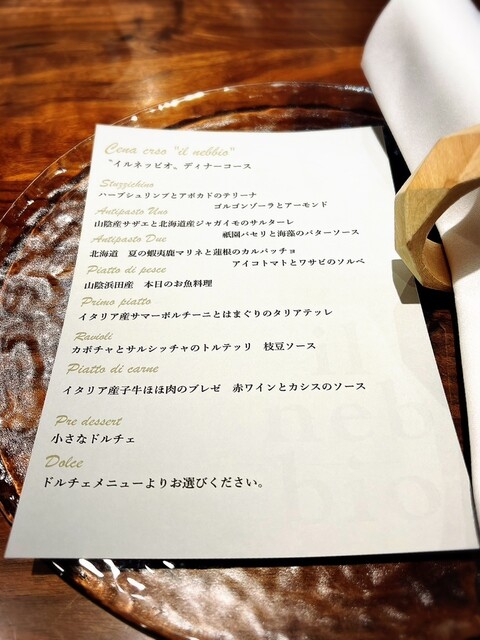 Cena crso "il nebbio"
〝イルネッビオ〟ディナーコース
Stuzzichino
ハーブシュリンプとアボカドのテリーナ
ゴルゴンゾーラとアーモンド
Antipasto Uno
山陰産サザエと北海道産ジャガイモのサルターレ
祇園パセリと海藻のバターソース
Antipasto Due
北海道 夏の蝦夷鹿マリネと蓮根のカルパッチョ
アイコトマトとワサビのソルベ
Piatto di pesce
山陰浜田産 本日のお魚料理
Primo piatto
イタリア産サマーポルチーニとはまぐりのタリアテッレ
Ravioli
カボチャとサルシッチャのトルテッリ 枝豆ソース
Piatto di carne
イタリア産子牛ほほ肉のブレゼ 赤ワインとカシスのソース
Pre dessert
小さなドルチェ
Dolce
ドルチェメニューよりお選びください。